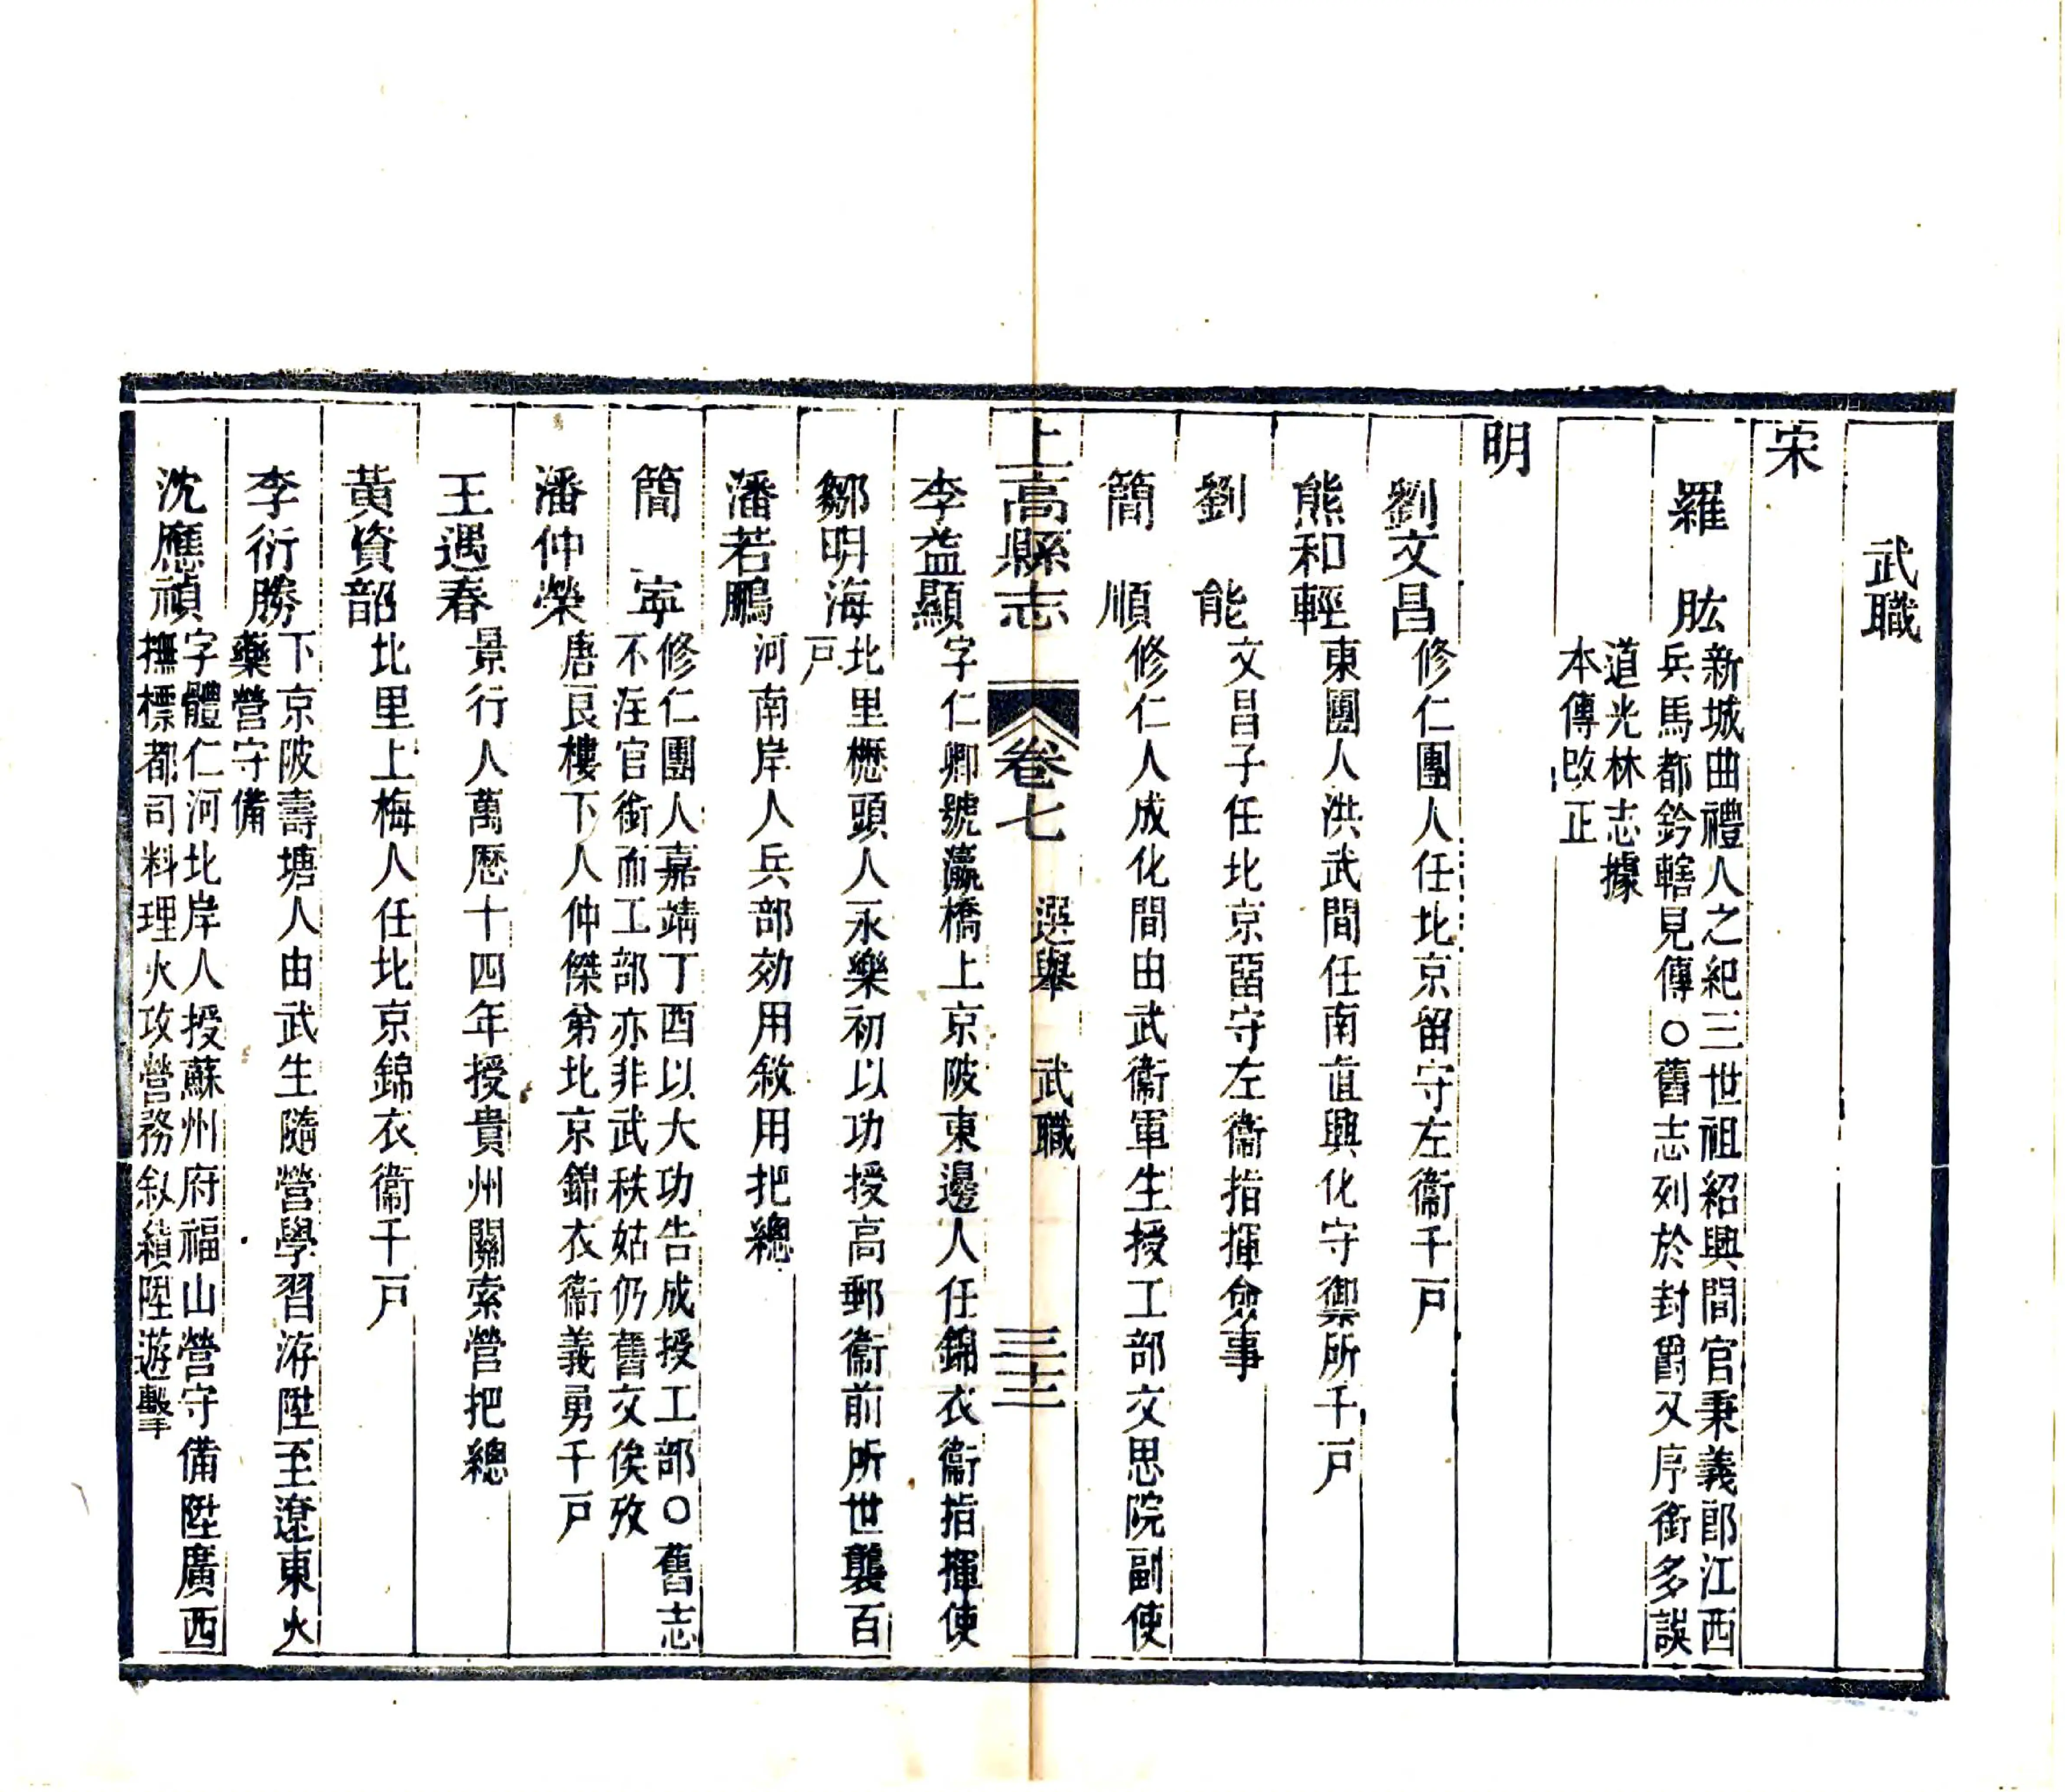 武職
宋
羅　肱
新城曲禮人之紀三世祖紹興間官秉義郎江西
兵馬都鈐轄見傳○舊志列於封爵又序銜多誤
道光林志據
本傳改正
明
劉文昌修仁團人任北京留守左衞千戸
熊和輕東團人洪武間任南直興化守禦所千戸
劉　能文昌子任北京畱守左衞指揮僉事
簡　順修仁人成化間由武衞軍生授工部文思院副使
上高縣志　卷七　選舉　武職　三十三
李益顯字仁卿號瀛橋上京陂東邊人任錦衣衞指揮使
鄒明海
北里櫪頭人永樂初以功授高郵衞前所世襲百
戸
潘若鵬河南岸人兵部効用敘用把總
簡　寍
修仁團人嘉靖丁酉以大功告成授工部○舊志
不注官銜而工部亦非武秩姑仍舊文俟攷
潘仲榮唐良樓下人仲傑弟北京錦衣衞義勇千戸
王遇春景行人萬厯十四年授貴州關索營把總
黃資韶北里上梅人任北京錦衣衞千戸
李衍勝
下京陂壽塘人由武生隨營學習洊陞至遼東火
藥營守備
沈應禎
字體仁河北岸人授蘇州府福山營守備陞廣西
撫標都司料理火攻營務敍績陞遊擊